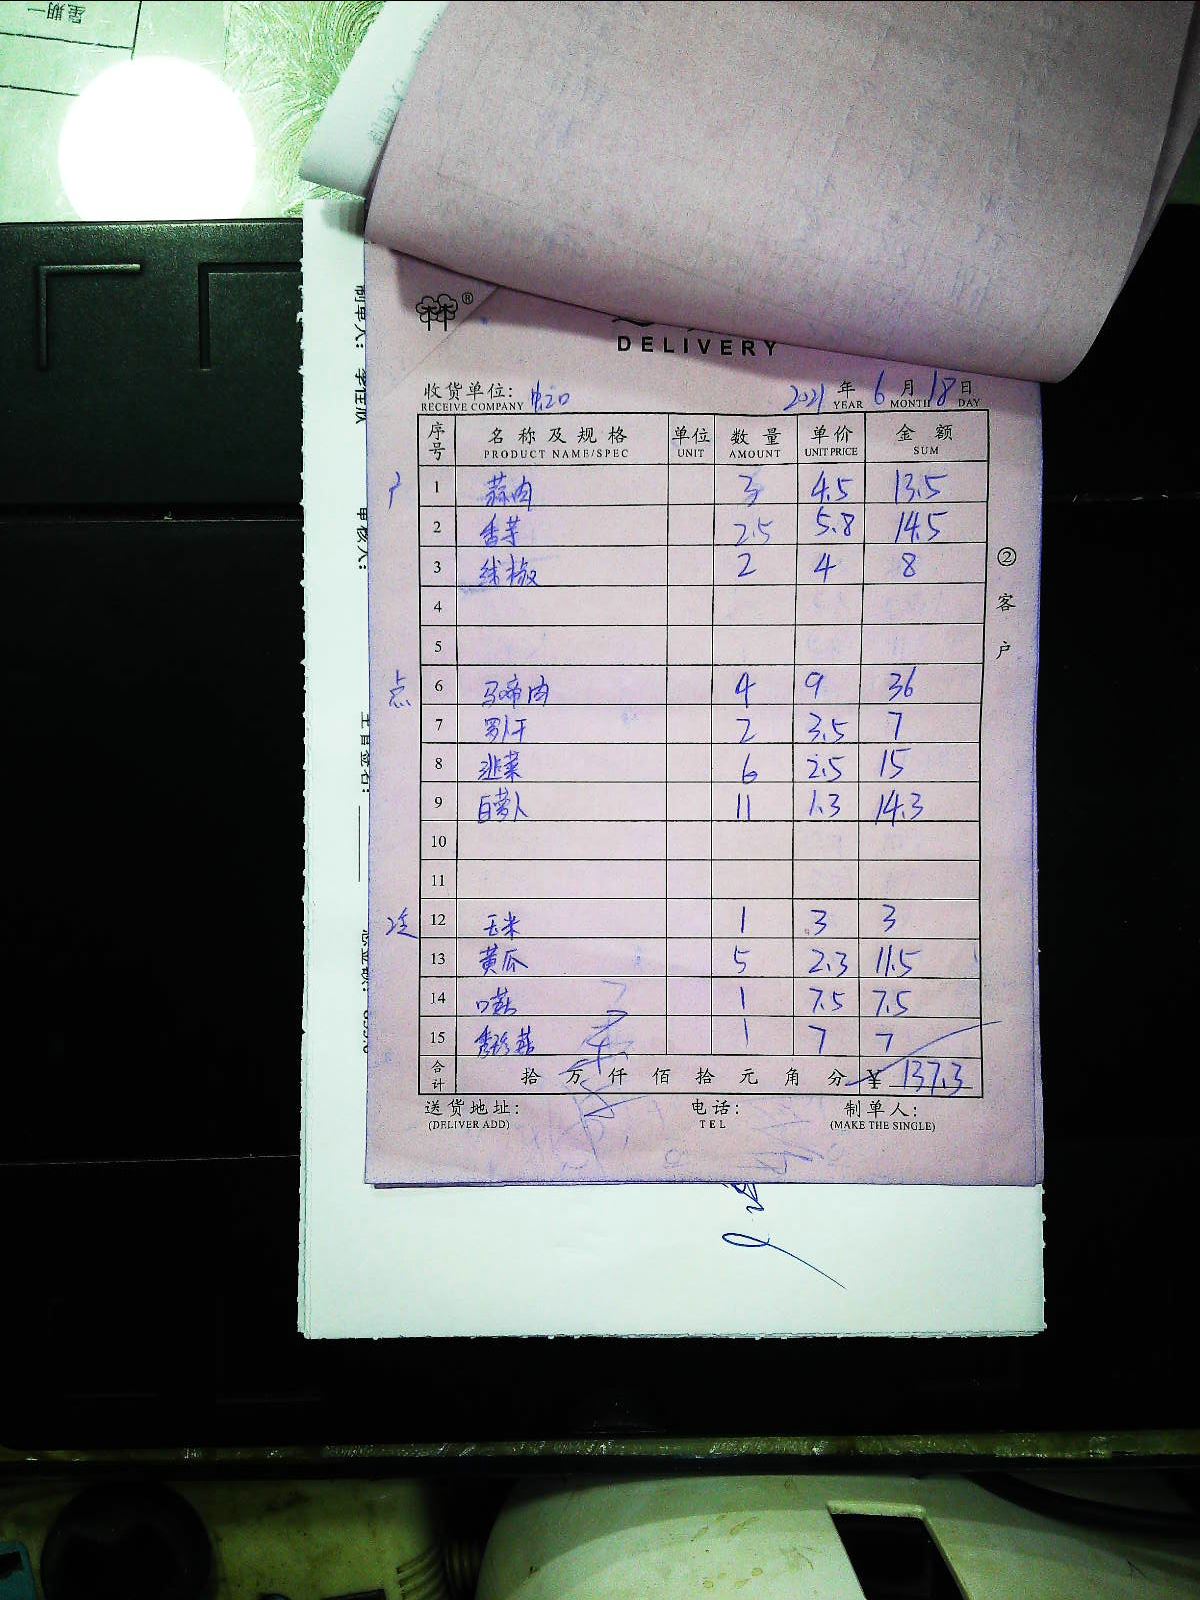 星期一
®
DELIVERY
收货单位:
RECEIVE COMPANY
2021 年 6 月 18 日
YEAR MONTH DAY
序号 名称及规格 单位 数量 单价 金额
PRODUCT NAME/SPEC UNIT AMOUNT UNIT PRICE SUM
1 蒜肉 3 4.5 13.5
2 香芋 2.5 5.8 14.5
3 线椒 2 4 8
4
5
点 6 马啼肉 4 9 36
7 罗卜干 2 3.5 7
8 韭菜 6 2.5 15
9 白萝卜 11 1.3 14.3
10
11
12 玉米 1 3 3
13 黄瓜 5 2.3 11.5
14 口菇 1 7.5 7.5
15 秀珍菇 1 7 7
合计 拾 万 仟 佰 拾 元 角 分 ¥ 137.3
送货地址: 电话: 制单人:
(DELIVER ADD) TEL (MAKE THE SINGLE)
②客户
制单人:
审核人: